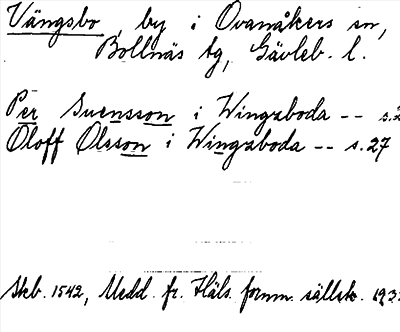 Vängsbo, by i Ovanåkers sn,
Bollnäs tg, Gävleb. l.
Per Svensson i Wingzboda -- s.2
Oloff Olsson i Wingzboda -- s.27
Skb. 1542, Medd. fr. Häls. fornm. sällsk. 193